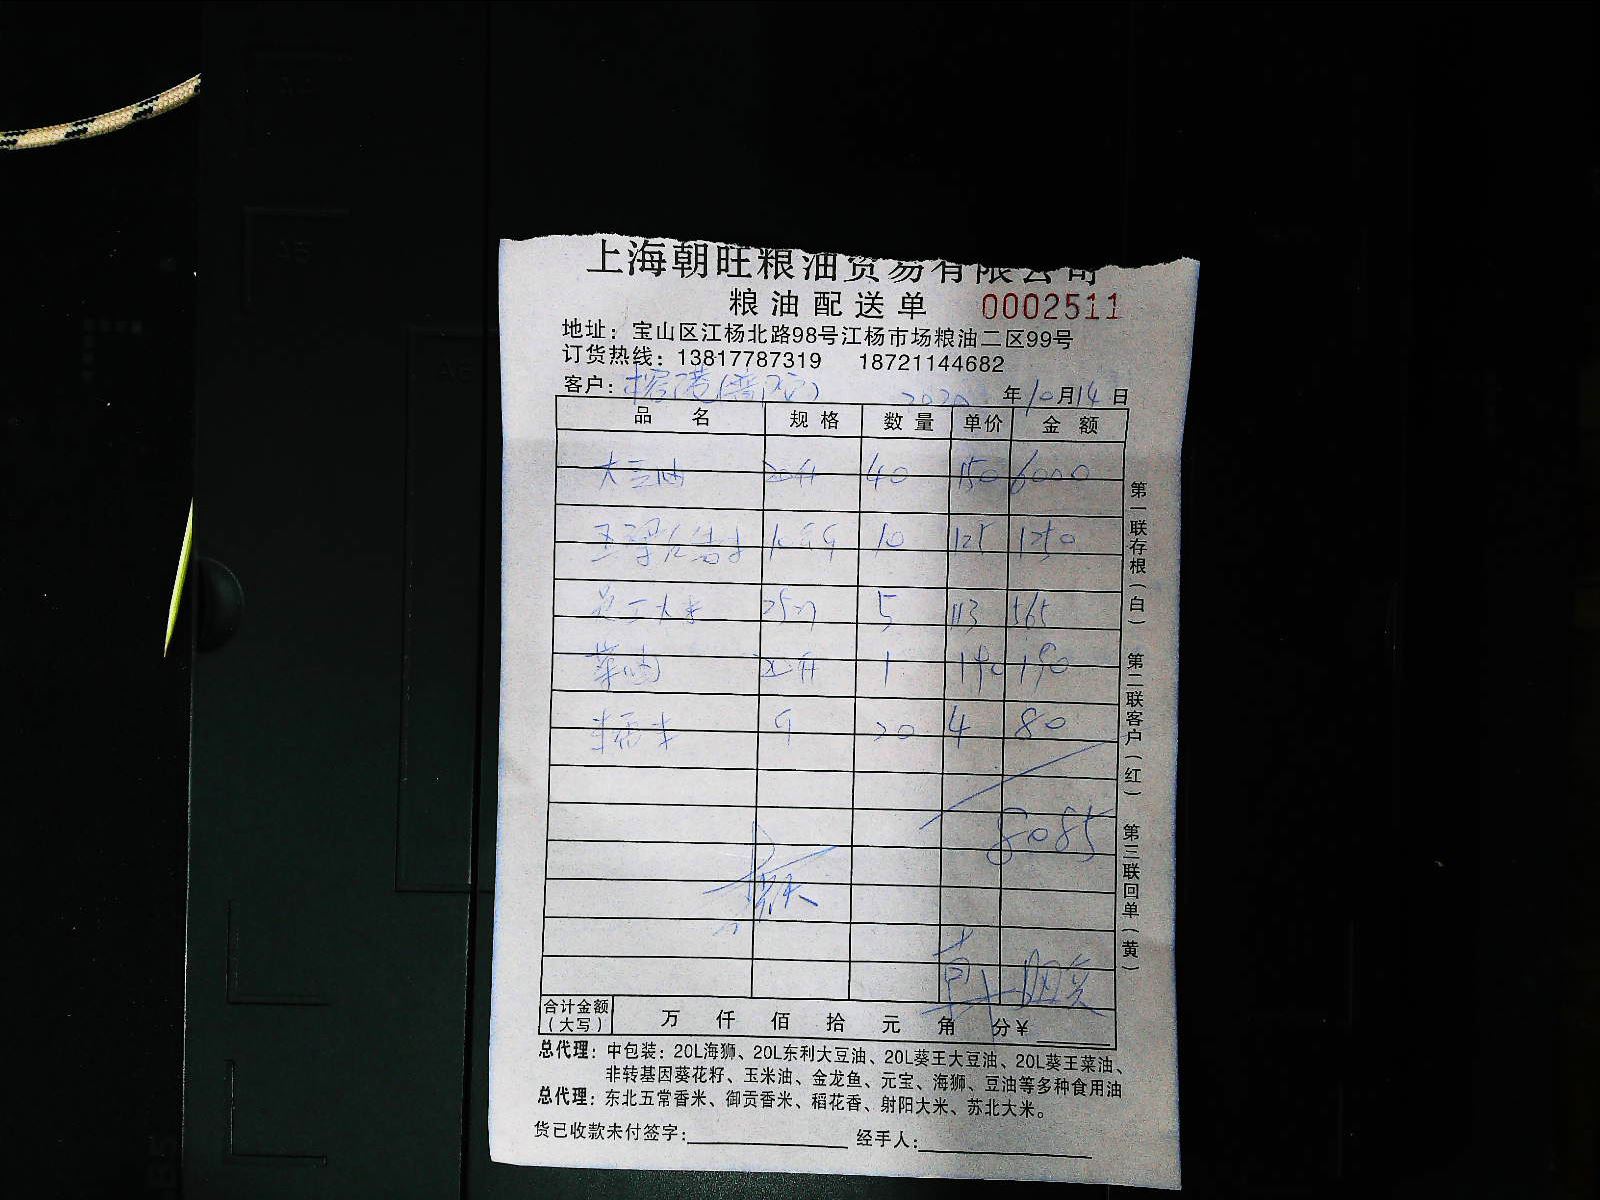 上海朝旺粮油贸易有限公司
粮油配送单 0002511
地址：宝山区江杨北路98号江杨市场粮油二区99号
订货热线：13817787319 18721144682
客户： 2020年10月14日
品名 规格 数量 单价 金额
大豆油 20升 40 150 6000
10 125 1250
大米 5 113 565
菜油 20升 1 190 190
斤 20 4 80
8085
合计金额（大写） 万 仟 佰 拾 元 角 分￥
总代理：中包装：20L海狮、20L东利大豆油、20L葵王大豆油、20L葵王菜油、
非转基因葵花籽、玉米油、金龙鱼、元宝、海狮、豆油等多种食用油
总代理：东北五常香米、御贡香米、稻花香、射阳大米、苏北大米。
货已收款未付签字： 经手人：
第一联存根（白） 第二联客户（红） 第三联回单（黄）